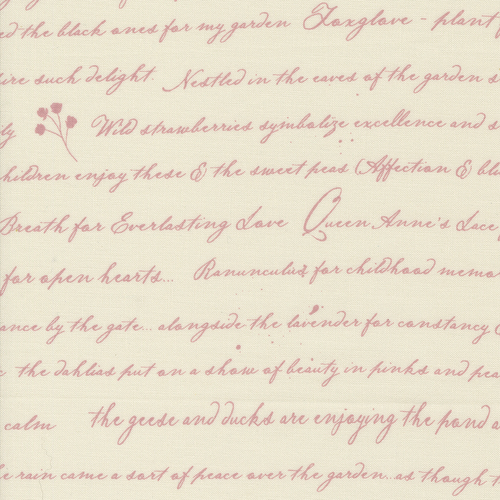 ed the black ones for my garden Foxglove - plant f
ire such delight. Nestled in the eaves of the garden s
ly Wild strawberries symbolize excellence and s
hildren enjoy these & the sweet peas (Affection & bli
Breath for Everlasting Love Queen Anne's Lace
for open hearts... Ranunculus for childhood memo
ance by the gate... alongside the lavender for constancy
the dahlias put on a show of beauty in pinks and pea
calm the geese and ducks are enjoying the pond a
e rain came a sort of peace over the garden...as though t